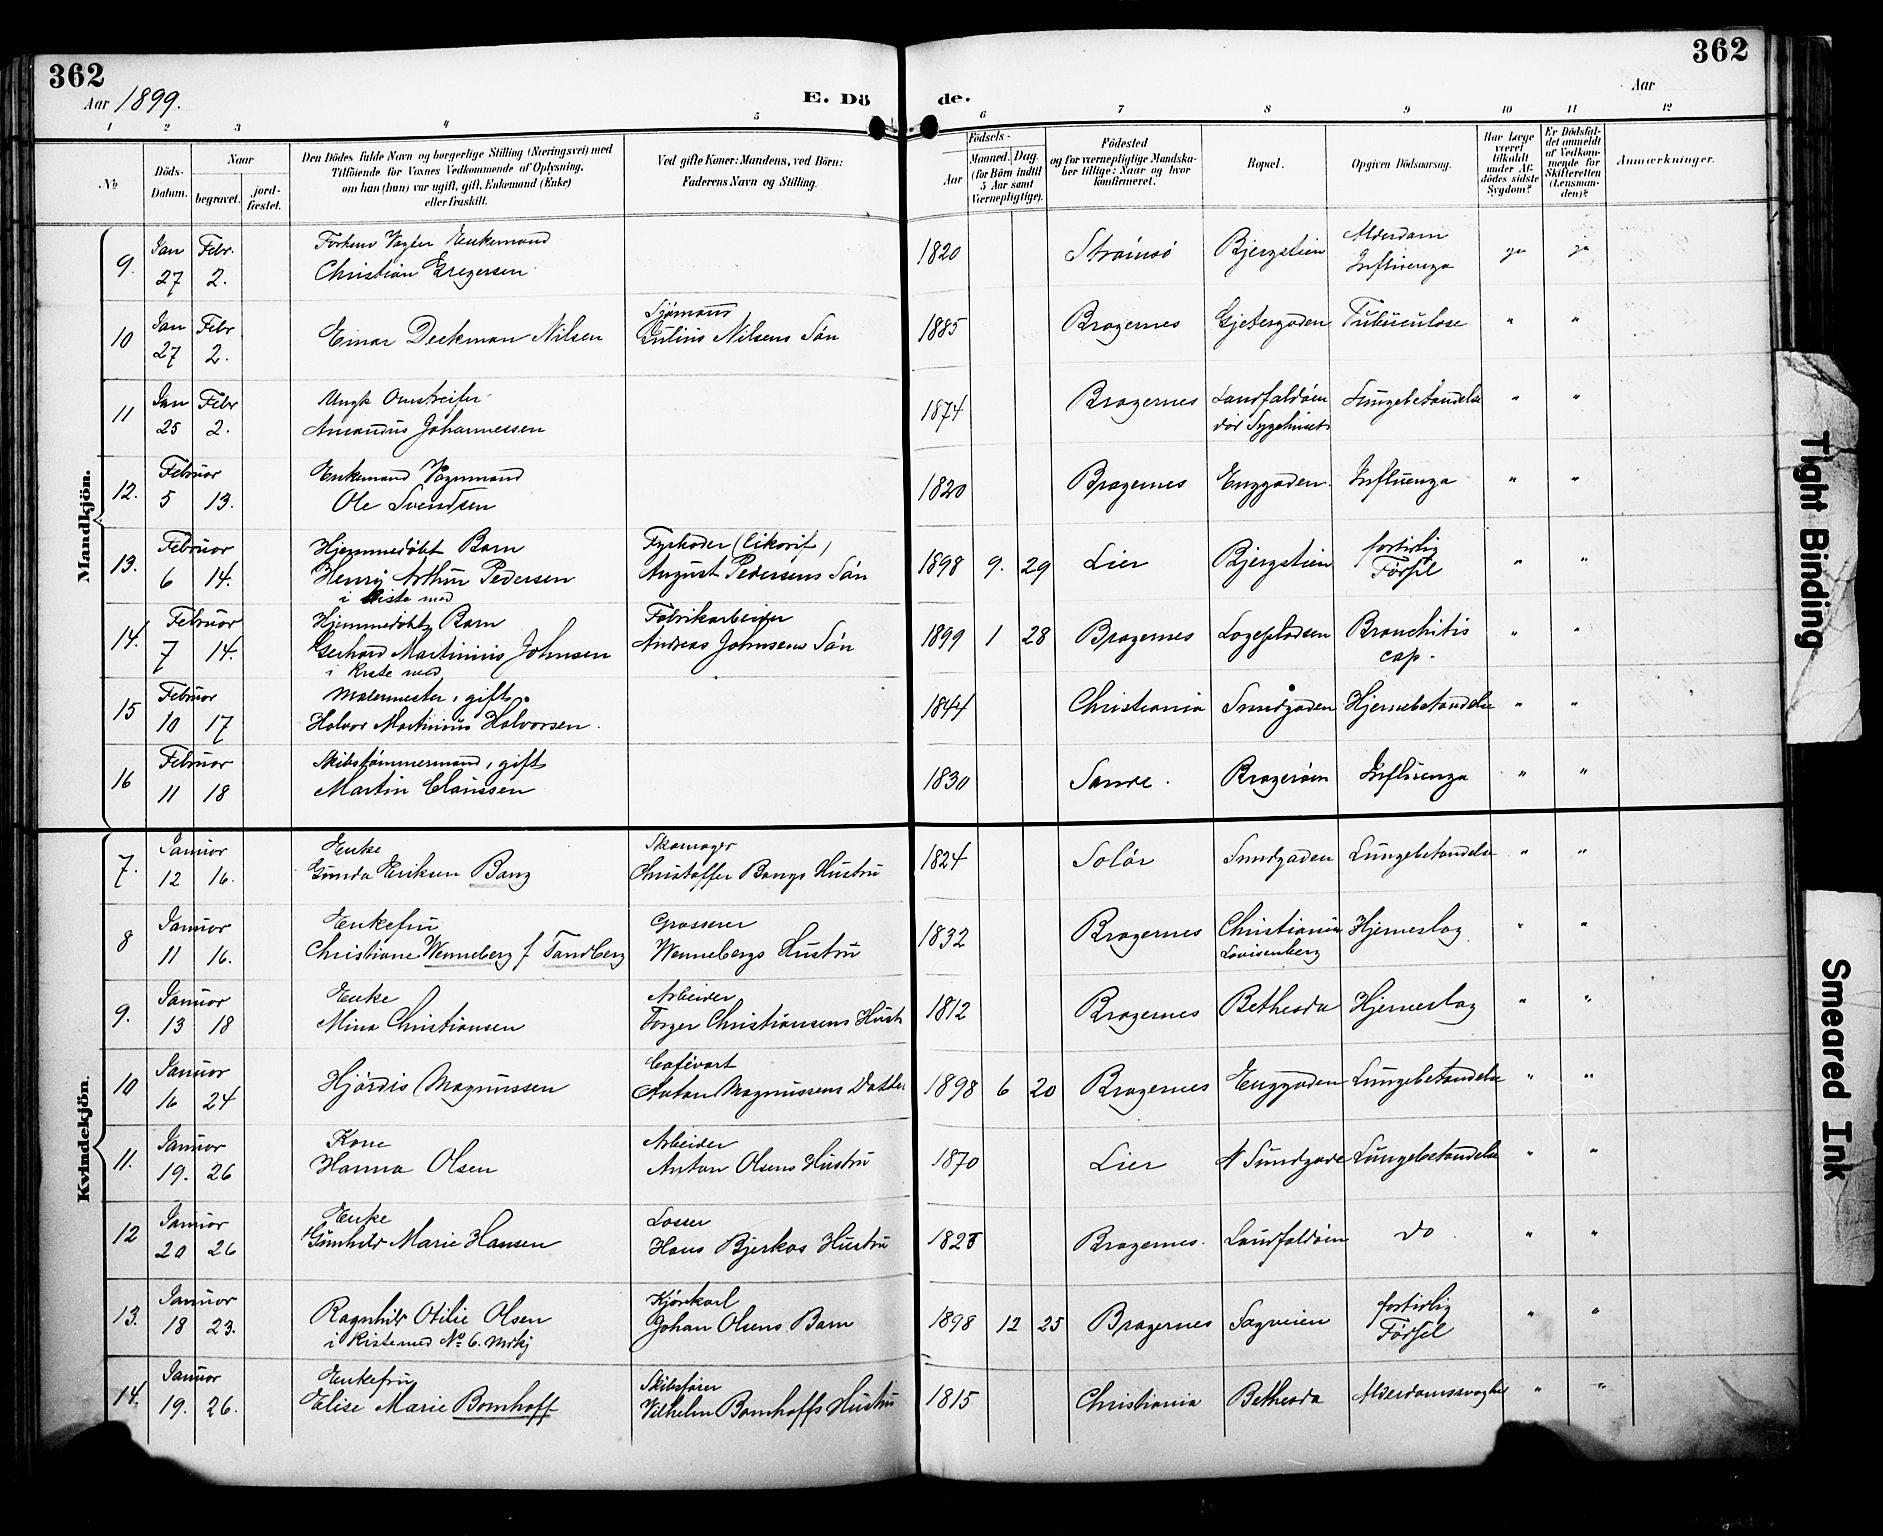 362
362
Aar 1899.
E. Dö de.
Aar
1 2 3 4 5 6 7 8 9 10 11 12
No
Döds-Datum.
Naar
begravet.
jord-fæstet.
Den Dödes fulde Navn og borgerlige Stilling (Næringsvei) med
Tilföiende for Voxnes Vedkommende af Oplysning,
om han (hun) var ugift, gift, Enkemand (Enke)
eller fraskilt.
Ved gifte Koner: Mandens, ved Börn:
Faderens Navn og Stilling.
Födsels-
Aar
Maaned. Dag.
(for Börn indtil
5 Aar samt
Værnepligtige).
Födested
og for værnepligtige Mandska-
ber tillige: Naar og hvor
konfirmeret.
Bopæl.
Opgiven Dödsaarsag.
Har Læge
været
tilkaldt
under Af-
dödes sidste
Sygdom?
Er Dödsfal-
det anmeldt
af Vedkom-
mende for
Skifteretten
(Lensman-
den)?
Anmærkninger.
Mandkjön.
9. Jan 27 Febr. 2. Forhenv Vægter Enkemand
Christian Gregersen 1820 Strömsö Bjergstien Alderdom
Influenza ja ja
10 Jan 27 Febr 2. Einar Deekman Nilsen Sjömand
Julius Nilsens Sön 1885 Bragernes Gjetergaden Tuberculose " "
11 Jan 25 Febr 2. Ungk Omstreifer
Amandus Johannessen 1874 Bragernes Landfaldöen
Sygehuset Lungebetændelse " "
12. Februar 5 13. Enkemand Vognmand
Ole Svendsen 1820 Bragernes Enggaden Influenza " "
13. Februar 6 14. Hjemmedöbt Barn
Henry Arthur Pedersen
i Kiste med Fyrböder (Cikorif)
August Pedersens Sön 1898 9. 29 Lier Bjergstien for tidlig
Fødsel " "
14. Februar 7 14. Hjemmedöbt Barn
Gerhard Martinius Johnsen
i Kiste med Fabrikarbeider
Andreas Johnsens Sön 1899 1 28 Bragernes Logepladsen Bronchitis
cap. " "
15 Februar 10 17 Malermester, gift
Halvor Martinius Halvorsen. 1844 Christiania Sundgaden Hjernebetændelse " "
16 Februar 11 18 Skibstömmermand, gift
Martin Claussen 1830 Sande. Brageröen Influenza " "
Kvindekjön.
7. Januar 12 16. Enke
Gunda Eriksen Bang Skomager
Christoffer Bangs Hustru 1824 Solör Sundgaden Lungebetændelse " "
8 Januar 11 16. Enkefru
Christiane Wenneberg f Tandberg Grosserer
Wennebergs Hustru 1832 Bragernes Christiania
Lovisenberg Hjerneslag " "
9. Januar 13 18 Enke
Mina Christiansen Arbeider
Torger Christiansens Hust 1812 Bragernes Bethesda Hjerneslag " "
10 Januar 16 24 Hjördis Magnussen Cafévært
Anton Magnussens Datter 1898 6 20 Bragernes Enggaden Lungebetændelse " "
11. Januar 19. 26 Kone
Hanna Olsen Arbeider
Anton Olsens Hustru 1870 Lier N Sundgade Lungebetændelse " "
12 Januar 20 26 Enke
Gunhild Marie Hansen Losser
Hans Bjerkas Hustru 1828 Bragernes. Landfaldöen do " "
13. Januar 18 23. Ragnhild Otilie Olsen
i Kiste med No 6. Mdkj Kjörekarl
Johan Olsens Barn 1898 12 25 Bragernes Sagveien for tidlig
Födsel " "
14. Januar 19. 26. Enkefru
Elise Marie Bomhoff Skibsförer
Vilhelm Bomhoffs Hustru 1815 Christiania Bethesda Alderdomssvaghed " "
Tight Binding
Smeared Ink